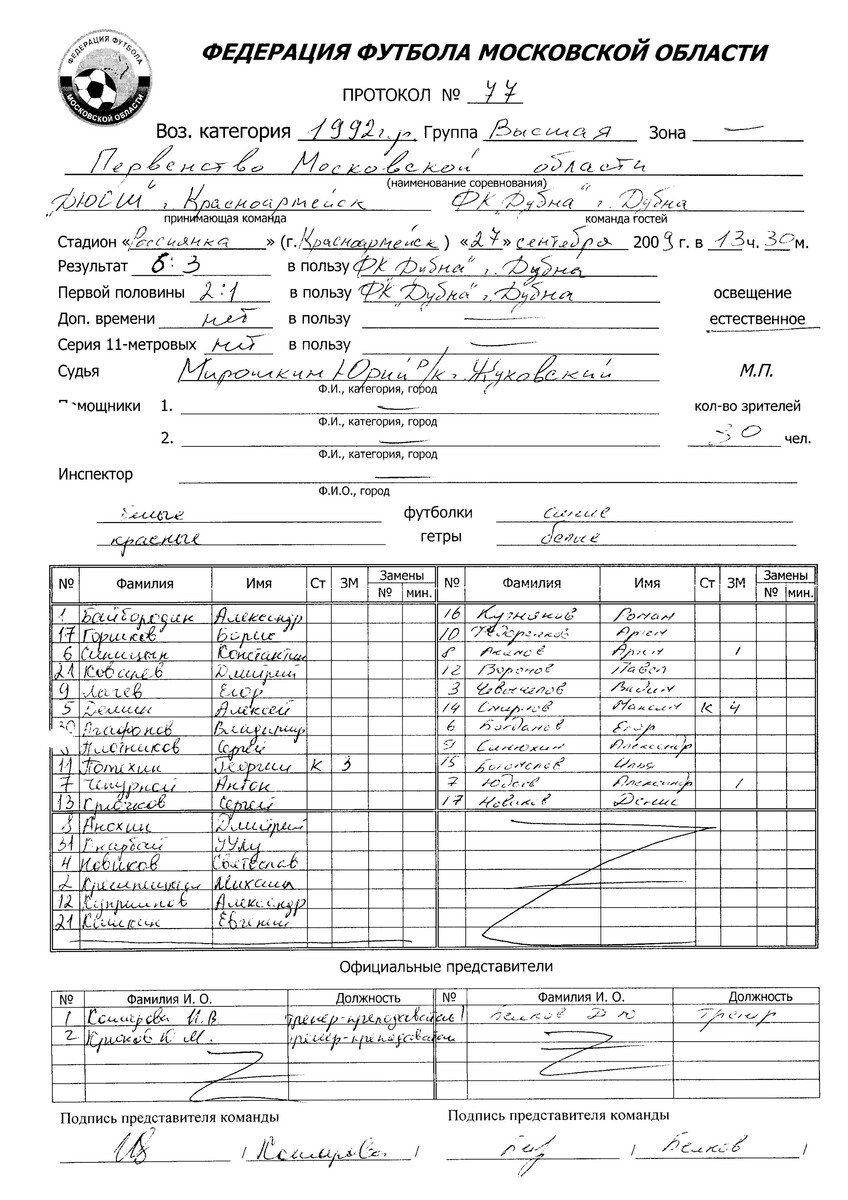 ФЕДЕРАЦИЯ ФУТБОЛА
МОСКОВСКОЙ ОБЛАСТИ
ФЕДЕРАЦИЯ ФУТБОЛА МОСКОВСКОЙ ОБЛАСТИ
ПРОТОКОЛ № 77
Воз. категория 1992г.р. Группа Высшая Зона —
Первенство Московской области
(наименование соревнования)
"ДЮСШ" г. Красноармейск ФК "Дубна" г. Дубна
принимающая команда команда гостей
Стадион «Россиянка» (г. Красноармейск) «27» сентября 2009 г. в 13 ч. 30 м.
Результат 6:3 в пользу ФК "Дубна" г. Дубна
Первой половины 2:1 в пользу ФК "Дубна" г. Дубна освещение
Доп. времени нет в пользу — естественное
Серия 11-метровых нет в пользу —
Судья Мирошкин Юрий р/к г. Жуковский М.П.
Ф.И., категория, город
Помощники 1. — кол-во зрителей
Ф.И., категория, город
2. — 30 чел.
Ф.И., категория, город
Инспектор —
Ф.И.О., город
белые футболки синие
красные гетры белые
№ Фамилия Имя Ст ЗМ Замены № мин. № Фамилия Имя Ст ЗМ Замены № мин.
1 Байбородин Александр 16 Роман
17 Горшков Борис 10 Артем
6 Синицын Константин 8 Акимов Артем 1
21 Ковалев Дмитрий 12 Воронов Павел
9 Лачев Егор 3 Вадим
5 Демин Алексей 14 Смирнов Максим К 4
20 Агафонов Владимир 6 Богданов Егор
Плотников Сергей 9 Синюхин Александр
11 Потехин Георгий К 3 15 Илья
7 Чепурной Антон 7 Юдаев Александр 1
13 Крючков Сергей 17 Новиков Денис
8 Анохин Дмитрий
31 Уулу
4 Новиков Святослав
2 Михаил
12 Александр
21 Евгений
Официальные представители
№ Фамилия И. О. Должность № Фамилия И. О. Должность
1 Комарова И.В. тренер-преподаватель 1 Белков Д Ю Тренер
2 Крюков Ю.М. тренер-преподаватель
Подпись представителя команды Подпись представителя команды
/ Комарова / / Белков /